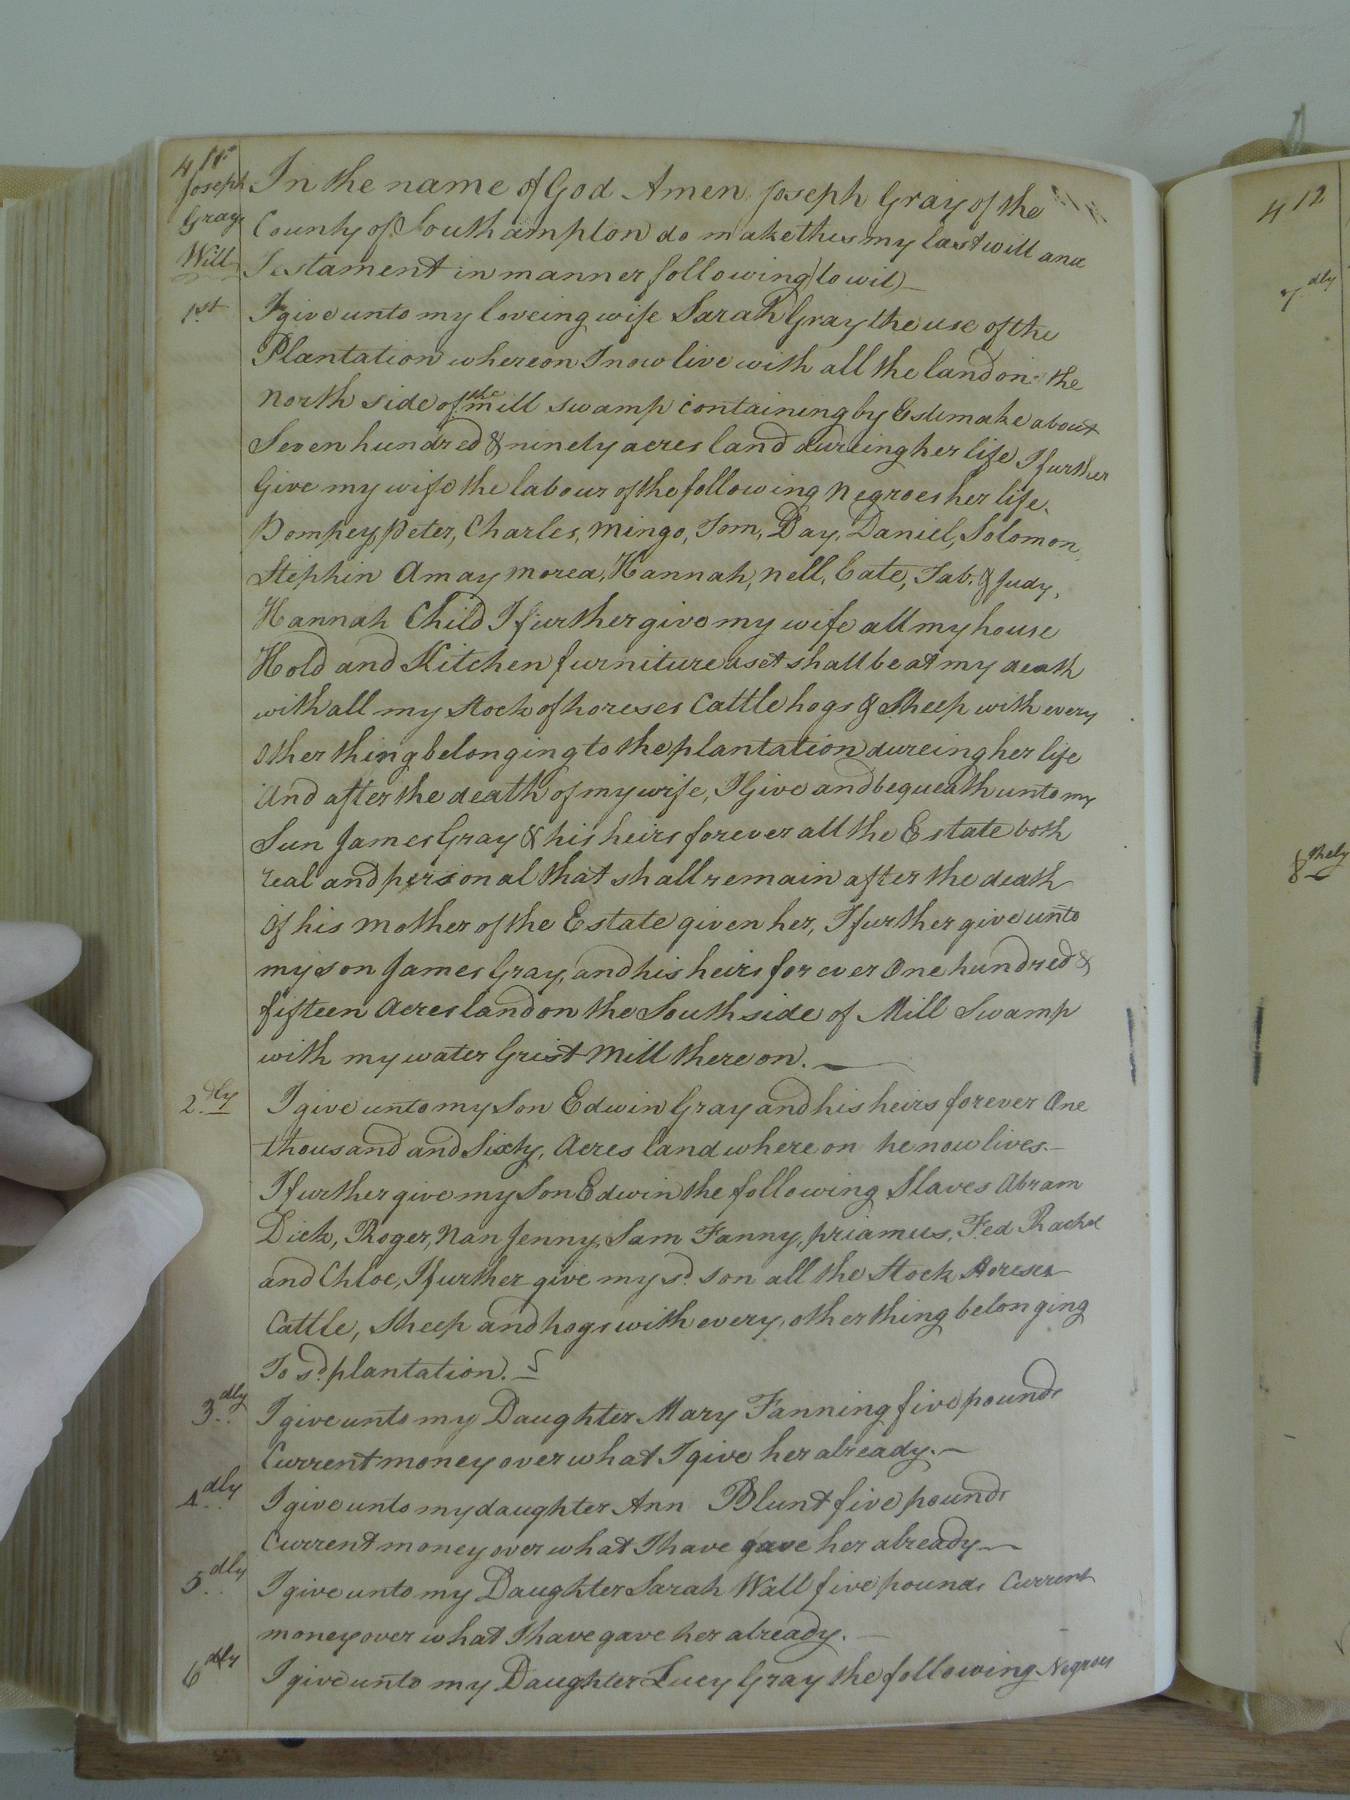 411
Joseph
Gray
Will
In the name of God Amen Joseph Gray of the
County of Southampton do make this my last will and
Testament in manner following (to wit)
1st I give unto my loveing wife Sarah Gray the use of the
Plantation whereon I now live with all the land on the
North side of the mill swamp containing by Estimate about
Seven hundred & ninety acres land dureing her life I further
Give my wife the labour of the following Negroes her life.
Pompey, Peter, Charles, Mingo, Tom, Day, Daniel, Solomon,
Stephin Amay Morea, Hannah, Nell, Cate, Tab, & Judy,
Hannah Child I further give my wife all my house
Hold and Kitchen furniture as it shall be at my death
with all my Stock of horeses Cattle hogs & Sheep with every
Other thing belonging to the plantation dureing her life
And after the death of my wife, I Give and bequeath unto my
Sun James Gray & his heirs forever all the Estate both
real and personal that shall remain after the death
Of his Mother of the Estate given her, I further give unto
my son James Gray, and his heirs for ever One hundred &
fifteen Acres land on the South side of Mill Swamp
with my water Grist Mill there on.
2.dly I give unto my Son Edwin Gray and his heirs forever One
thousand and Sixty, Acres land where on he now lives.
I further give my Son Edwin the following Slaves Abram
Dick, Roger, Nan Jenny, Sam Fanny, priamus, Fed Rachel
and Chloe, I further give my sd. son all the Stock Horeses
Cattle, Sheep and hogs with every, other thing belonging
To sd. plantation.
3.dly I give unto my Daughter Mary Fanning five pounds
Current money over what I give her already.
4.dly I give unto my daughter Ann Blunt five pounds
Current money over what I have gave her already
5.dly I give unto my Daughter Sarah Wall five pounds Current
money over what I have gave her already.
6dly I give unto my Daughter Lucy Gray the following Negroes
412
7.dly
8thely